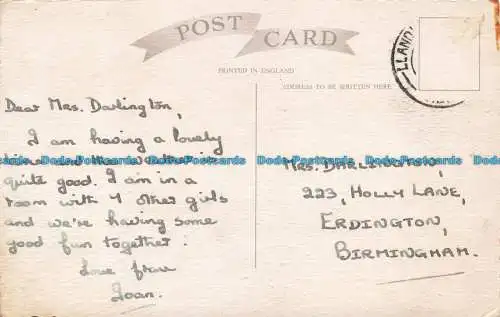 POST CARD
PRINTED IN ENGLAND
ADDRESS TO BE WRITTEN HERE
LLAND
Dear Mrs. Darlington,
I am having a lovely
time and the weather is
quite good. I am in a
room with 4 other girls
and we're having some
good fun together.
Love from
Joan.
MRS. DARLINGTON,
223, HOLLY LANE,
ERDINGTON,
BIRMINGHAM.
Dodo Postcards Dodo Postcards Dodo Postcards Dodo Postcards